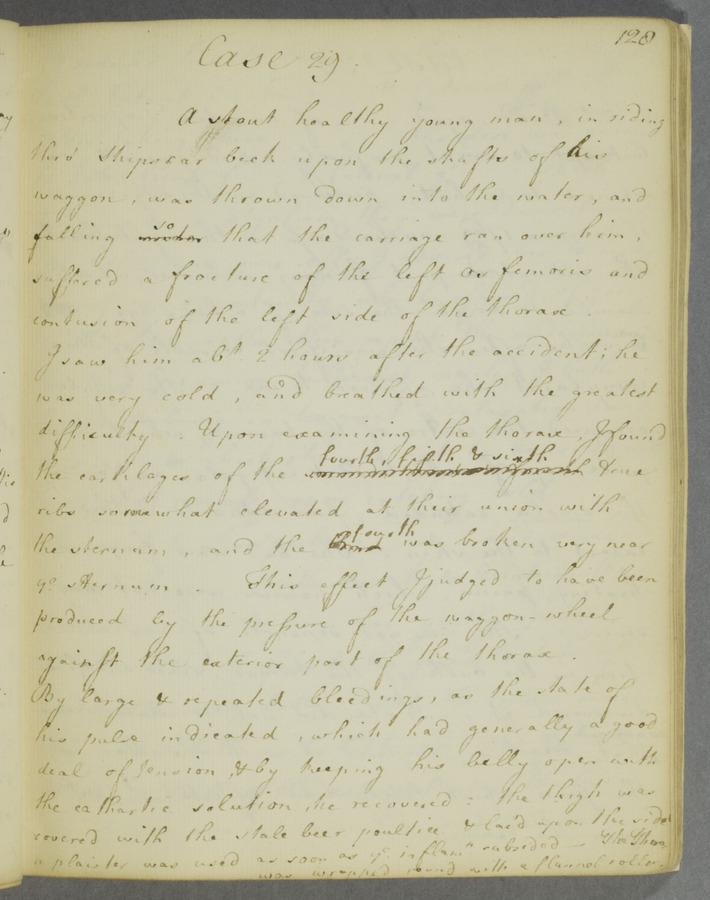 128
Case 29.
A stout healthy young man, in riding
thro' Shipscar beck upon the shafts of his
waggon, was thrown down into the water, and
falling so that the carriage ran over him,
suffered a fracture of the left os femoris and
contusion of the left side of the thorax.
I saw him abt. 2 hours after the accident; he
was very cold, and breathed with the greatest
difficulty. Upon examining the thorax, I found
the cartilages of the fourth, fifth & sixth true
ribs somewhat elevated at their union with
the sternum, and the fourth was broken very near
ye sternum. This effect I judged to have been
produced by the pressure of the waggon-wheel
against the exterior part of the thorax.
By large & repeated bleedings, as the state of
his pulse indicated, which had generally a good
deal of tension, & by keeping his belly open with
the cathartic solution, he recovered: the thigh was
covered with the stale beer poultice & laid upon the side
a plaister was used as soon as ye inflamn subsided — & the thorax
was wrapped round with a flannel roller.